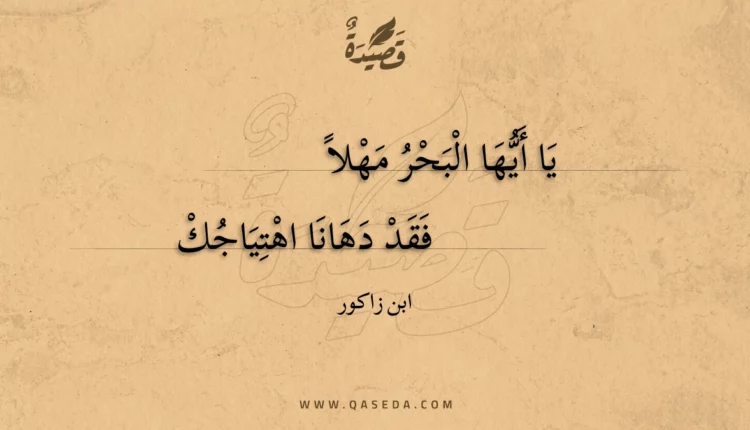 قَصِيْدَةٌ
يَا أَيُّهَا الْبَحْرُ مَهْلاً
فَقَدْ دَهَانَا اهْتِيَاجُكْ
ابن زاكور
WWW.QASEDA.COM